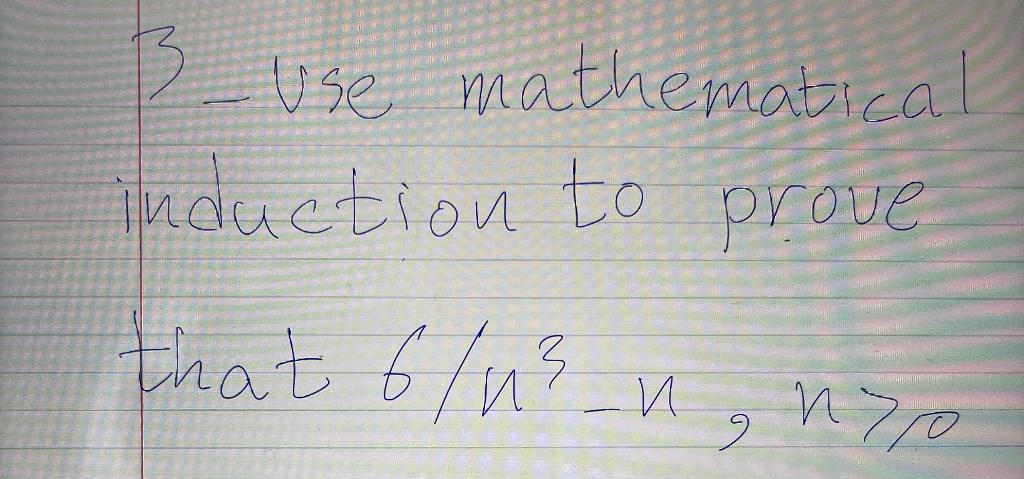 3_Use mathematical
induction to prove
that 6/n³_n, n⩾0